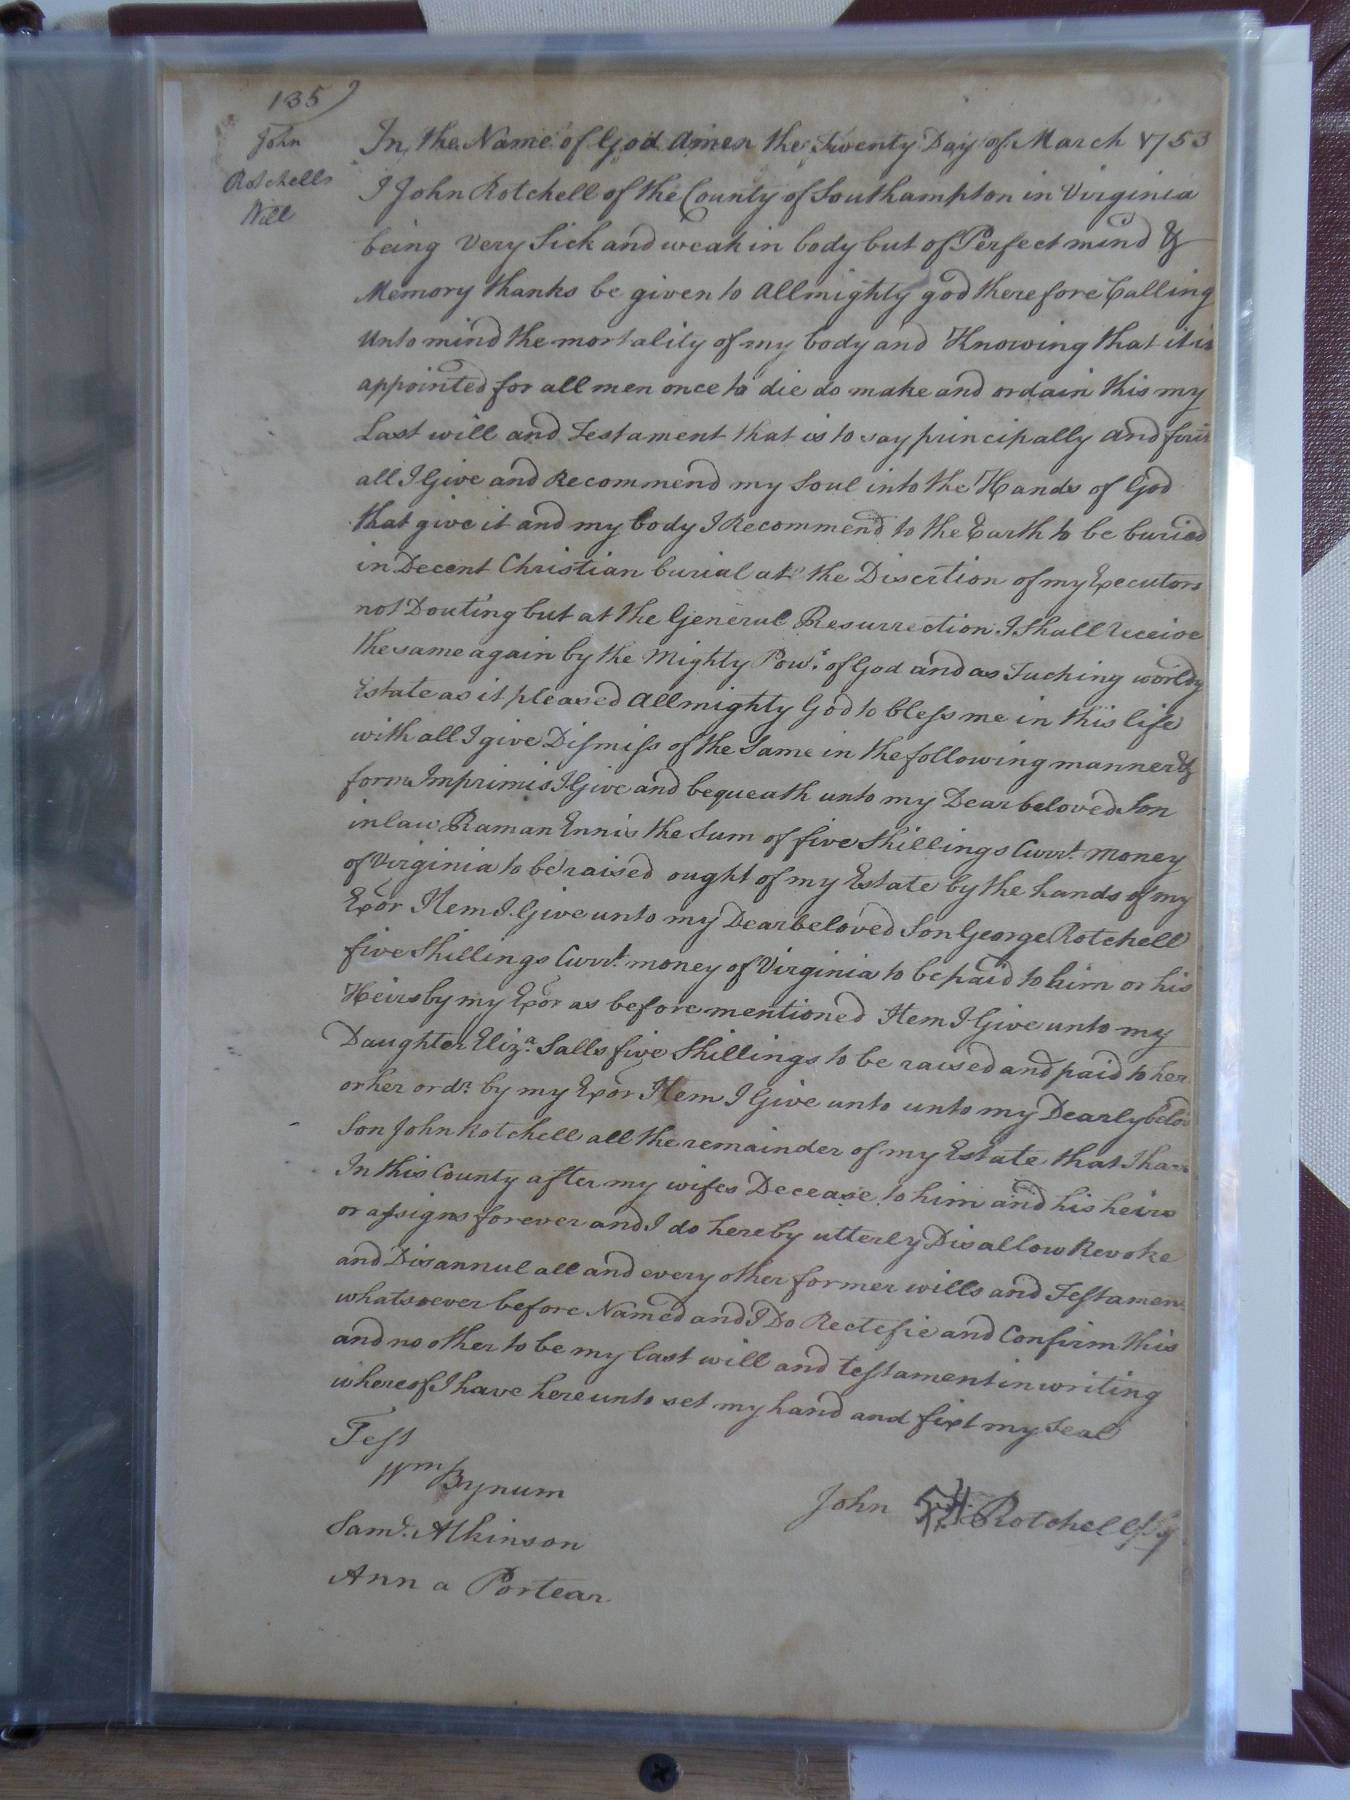 135
John
Rotchells
Will
In the Name of God Amen the Twenty Day of March 1753
I John Rotchell of the County of Southampton in Virginia
being Very Sick and weak in body but of Perfect mind &
Memory thanks be given to Allmighty god therefore Calling
Unto mind the mortality of my body and Knowing that it is
appointed for all men once to die do make and ordain this my
Last will and Testament that is to say principally and first
all I Give and Recommend my Soul into the Hands of God
that give it and my body I Recommend to the Earth to be buried
in Decent Christian burial at the Discrtion of my Executors
not Douting but at the General Resurrection I Shall receive
the same again by the Mighty Powr. of God and as Tuching worldly
Estate as it pleased Allmighty God to bless me in this life
with all I give Dismiss of the Same in the following manner &
form Imprimis I Give and bequeath unto my Dear beloved Son
in law Raman Ennis the Sum of five Shillings Currt. money
of Virginia to be raised ought of my Estate by the hands of my
Exor Item I Give unto my Dear beloved Son George Rotchell
five Shillings Currt. money of Virginia to be paid to him or his
Heirs by my Exor as before mentioned Item I Give unto my
Daughter Eliza. Salls five Shillings to be raised and paid to her
or her ordr. by my Exor Item I Give unto unto my Dearly belov
Son John Rotchell all the remainder of my Estate that I have
In this County after my wifes Decease to him and his heirs
or assigns forever and I do hereby utterly Disallow Revoke
and Disannul all and every other former wills and Testamen
whatsoever before Named and I Do Rectefie and Confirm this
and no other to be my last will and testament in writing
whereof I have hereunto set my hand and fixt my Seal
Test
Wm Bynum
John Rotchell
Saml. Atkinson
Ann a Portear